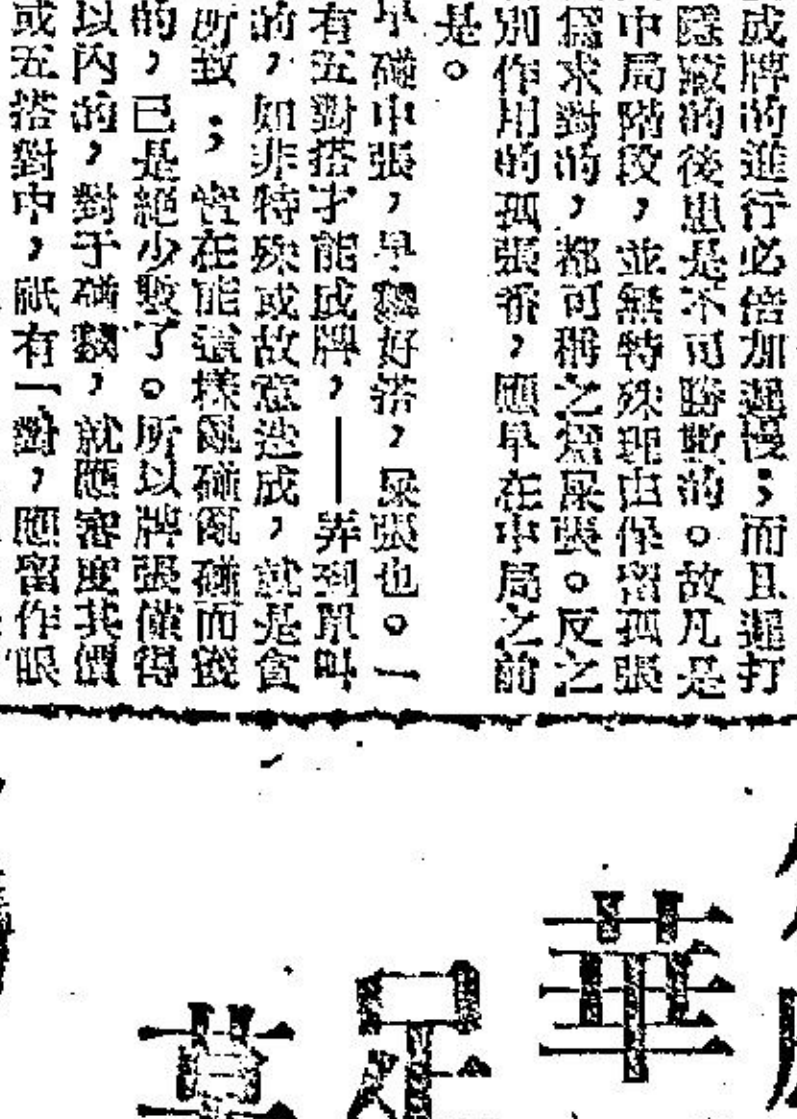 成牌的進行必倍加遲慢；而且遲打
隱藏的後患是不可勝數的。故凡是
中局階段，並無特殊理由保留孤張
爲求對的，都可稱之爲屎張。反之
別作用的孤張番，應早在中局之前
是。
早碰中張，早 好搭，屎張也。一
有五對搭才能成牌，——弄到單叫
的，如非特殊或故意造成，就是貪
所致；實在能這樣亂碰亂碰而
的，已是絕少數了。所以牌張僅得
以內的，對于碰 ，就應審度其價
或五搭對中，祇有一對，應留作眼
華
足